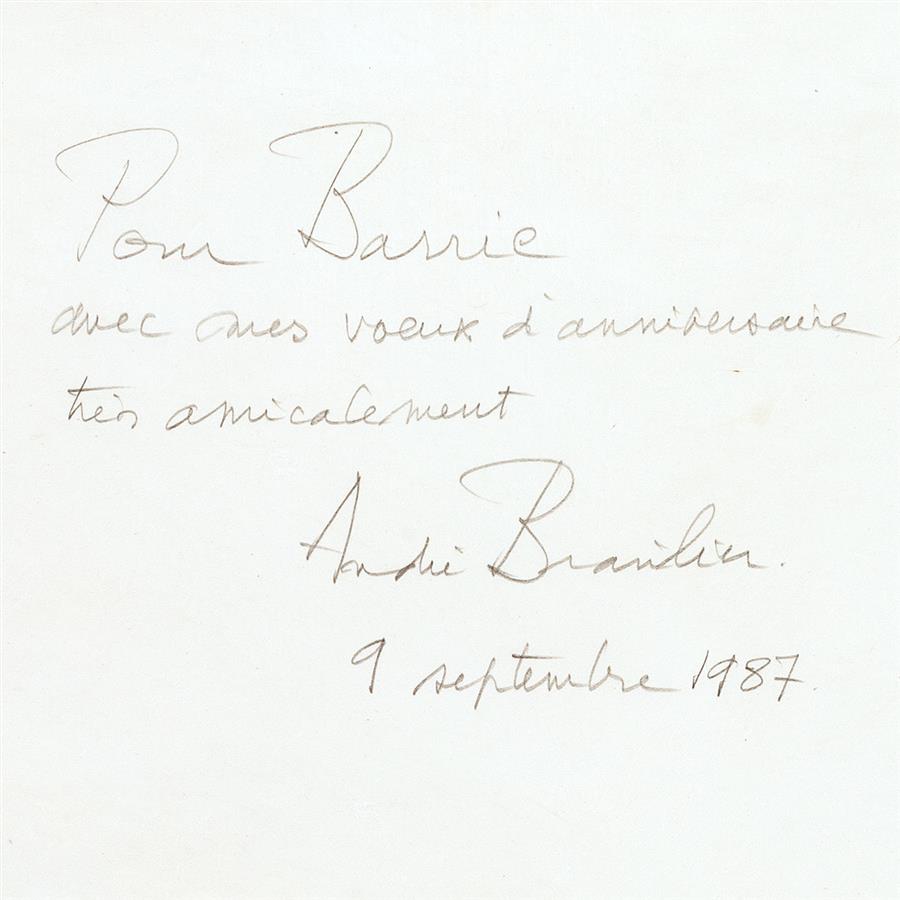 Pour Barrie
avec mes voeux d'anniversaire
très amicalement
André Brasilier.
9 septembre 1987.